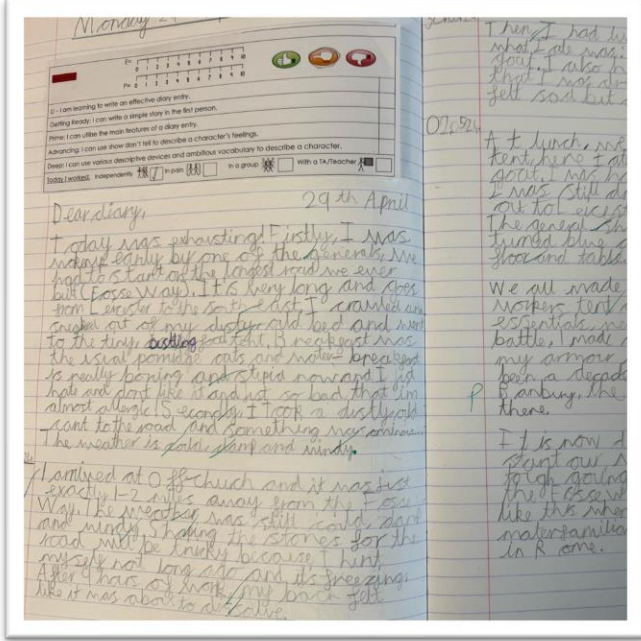 Monday 29
E=
0 1 2 3 4 5 6 7 8 9 10
P=
0 1 2 3 4 5 6 7 8 9 10
U - I am learning to write an effective diary entry.
Getting Ready: I can write a simple story in the first person.
Prime: I can utilise the main features of a diary entry.
Advancing: I can use show don't tell to describe a character's feelings.
Deep: I can use various descriptive devices and ambitious vocabulary to describe a character.
Today I worked: Independently In pairs In a group With a TA/Teacher
29th April
Dear diary,
Today was exhausting! Firstly, I was
early by one of the generals, we
had to start on the longest road we ever
(Fosse Way). It is very long and goes
from Leicester to the south east. I crawled and
out of my dusty, old bed and went
to the tiny, bustling tent. Breakfast was
the usual porridge oats and water
is really boring and stupid now and I
hate and dont like it and so bad that im
almost allergic! Secondly, I took a dusty, old
cart to the road and something was
The weather is cold, damp and windy.
I arrived at Offchuch and it was just
exactly 1-2 miles away from the Fosse
Way. The weather was still could, damp
and windy. Shaping the stones for the
road will be tricky because I hurt
myself not long ago and it's freezing.
After 9 hars of work, my back felt
like it was about to dissolve.
Then I had
what I ate was
goat. I also
that I was
felt sad but
At lunch, we
tent, here I
goat. I was
I was still
out to
The general
turned blue
floor and table.
We all made
workers tent
essentials,
battle. I made
my armour
been a decade
P Banbury, the
there.
It is now
start our
tough going
the Fosse
like this when
materfamilia
in Rome.